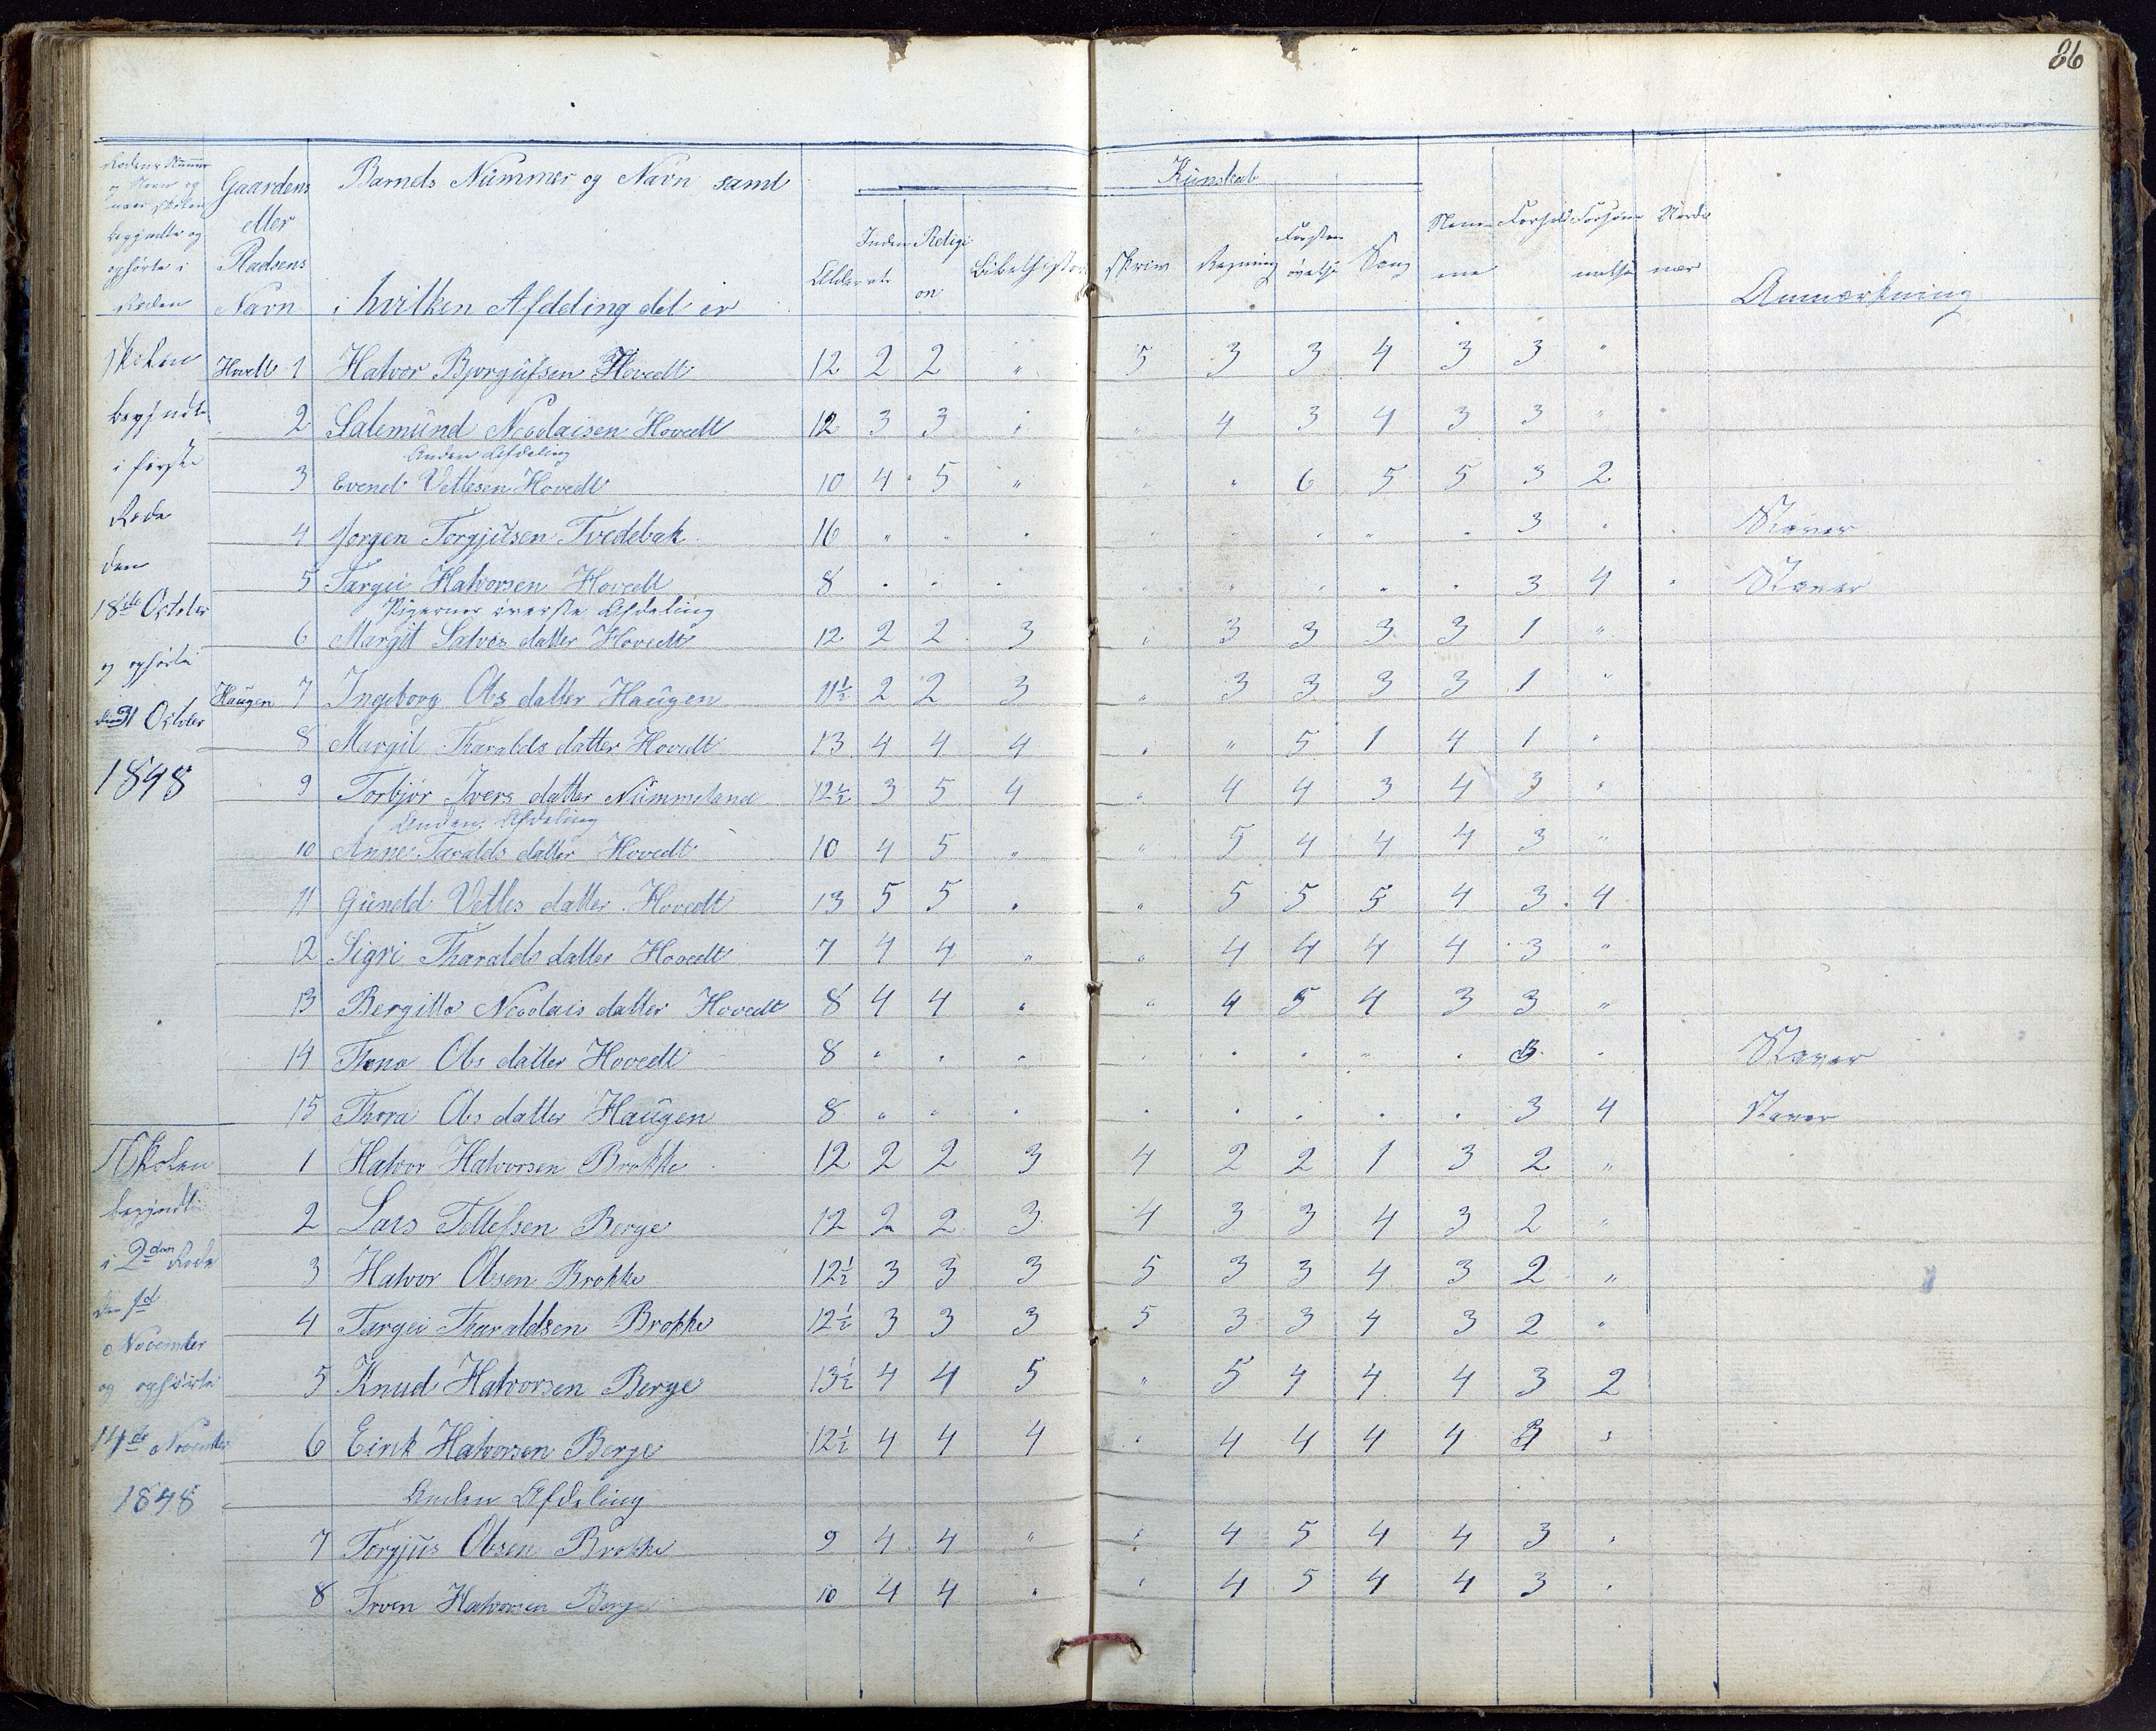 86
Rodens Nummer og Navn og naar Skolen begyndte og ophørte i Roden
Gaardens eller Pladsens Navn
Barnets Nummer og Navn samt i hvilken Afdeling det er
Alder
Inden
Religion
Bibelhistor
Kunskab
Skriv
Regning
Forstands øvelse
Sang
Nemme
Forhold
Forsømmelse
Anmærkning
Skolen begyndte i første Rode den 18de October og ophørte den 31 October 1848
Hovedt 1 Halvor Bjorgufsen Hovedt 12 2 2 " 5 3 3 4 3 3 "
2 Salemund Nicolaisen Hovedt 12 3 3 " " 4 3 4 3 3 "
Anden Afdeling
3 Evend Vetlesen Hovedt 10 4 5 " " " 6 5 5 3 2
4 Jorgen Torgjusen Tvedebak 16 " " " " " " " " 3 " Staver
5 Targei Halvorsen Hovedt 8 " " " " " " " " 3 4 Staver
Pigernes øverste Afdeling
6 Margit Salves datter Hovedt 12 2 2 3 " 3 3 3 3 1 "
Haugen 7 Ingeborg Ols datter Haugen 11½ 2 2 3 " 3 3 3 3 1 "
8 Margit Tharalds datter Hovedt 13 4 4 4 " " 5 1 4 1 "
9 Torbjør Ivers datter Nummeland 12½ 3 5 4 " 4 4 3 4 3 "
Anden Afdeling
10 Anne Taralds datter Hovedt 10 4 5 " " 5 4 4 4 3 "
11 Guneld Vetles datter Hovedt 13 5 5 " " 5 5 5 4 3 4
12 Sigri Tharalds datter Hovedt 7 4 4 " " 4 4 4 4 3 "
13 Bergitte Nicolais datter Hovedt 8 4 4 " " 4 5 4 3 3 "
14 Thone Ols datter Hovedt 8 " " " " " " " " 3 " Staver
15 Thora Ols datter Haugen 8 " " " " " " " " 3 4 Staver
Skolen begyndte i 2den Rode den 1ste November og ophørte 14de November 1848
1 Halvor Halvorsen Brokke 12 2 2 3 4 2 2 1 3 2 "
2 Lars Tellefsen Berge 12 2 2 3 4 3 3 4 3 2 "
3 Halvor Olsen Brokke 12½ 3 3 3 5 3 3 4 3 2 "
4 Targei Tharaldsen Brokke 12½ 3 3 3 5 3 3 4 3 2 "
5 Knud Halvorsen Berge 13½ 4 4 5 " 5 4 4 4 3 2
6 Eirik Halvorsen Berge 12½ 4 4 4 " 4 4 4 4 3 "
Anden Afdeling
7 Torgjus Olsen Brokke 9 4 4 " " 4 5 4 4 3 "
8 Troen Halvorsen Berge 10 4 4 " " 4 5 4 4 3 "